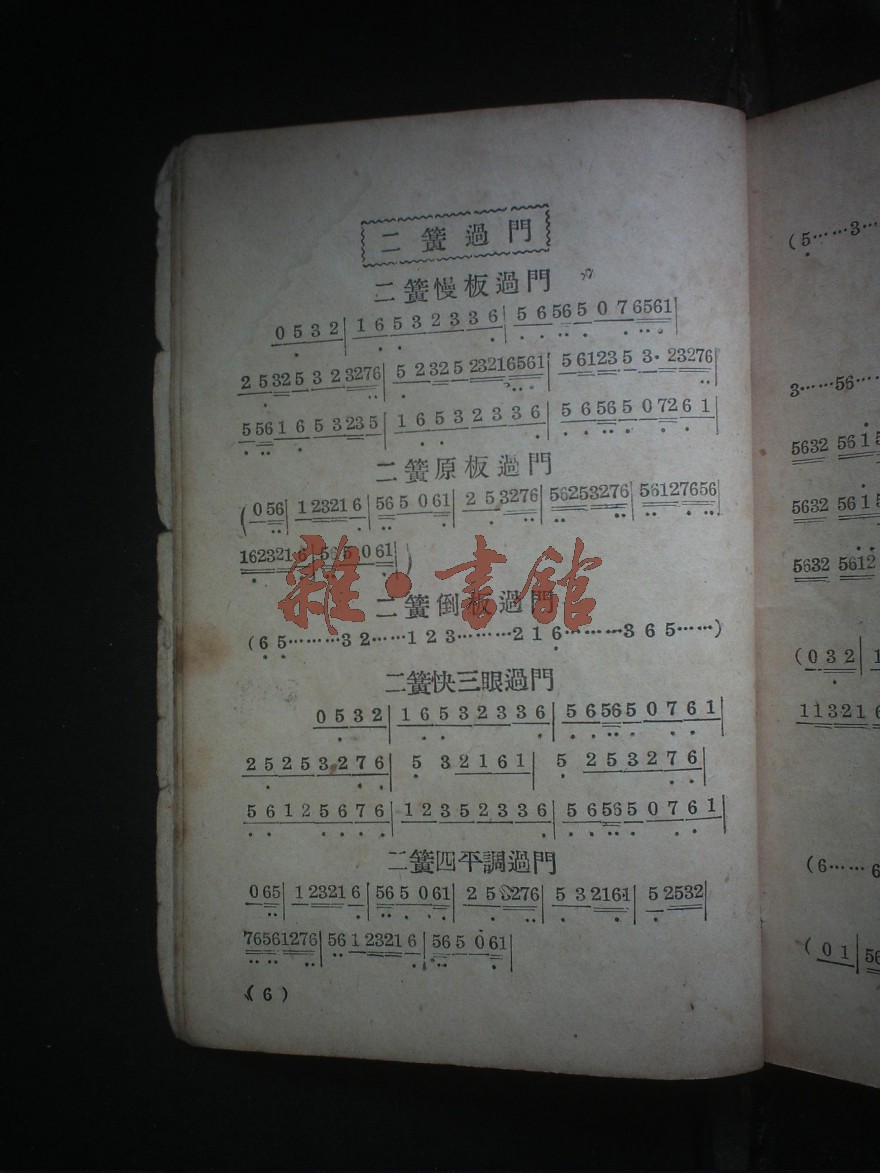 二簧過門
二簧慢板過門
0 5 3 2| 1 6 5 3 2 3 3 6| 5 6 56 5 0 7 6561|
2 5 32 5 3 2 3276| 5 2 32 5 23216561| 5 6123 5 3· 23276|
5 56 1 6 5 3 23 5| 1 6 5 3 2 3 3 6| 5 6 56 5 0 72 6 1|
二簧原板過門
(0 56| 1 2321 6| 56 5 0 61| 2 5 3276| 56253276| 56127656|
162321 6| 56 5 0 61|)
二簧倒板過門
(6 5………3 2……1 2 3………2 1 6………3 6 5……)
二簧快三眼過門
0 5 3 2| 1 6 5 3 2 3 3 6| 5 6 56 5 0 7 6 1|
2 5 2 5 3 2 7 6| 5 3 2 1 6 1| 5 2 5 3 2 7 6|
5 6 1 2 5 6 7 6| 1 2 3 5 2 3 3 6| 5 6 56 5 0 7 6 1|
二簧四平調過門
0 65| 1 2321 6| 56 5 0 61| 2 5 3276| 5 3 2161| 5 2532|
76561276| 56 1 2321 6| 56 5 0 61|
(6)
雜·書館
(5……3…
3……56……
5632
5632
5632 5612
(0 3 2| 1
113216
(6……6
(0 1| 56